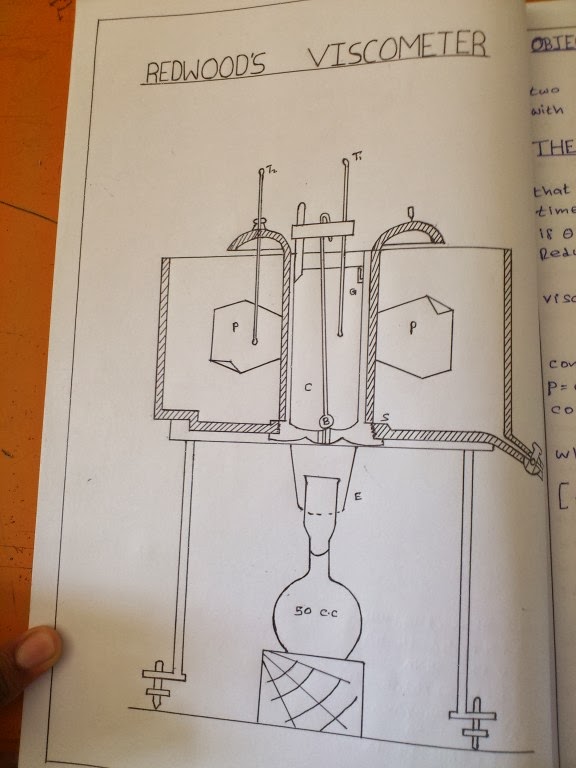 REDWOOD'S VISCOMETER
T2
T1
G
P
P
C
B
S
E
50 C.C
two
with
THE
that
time
is
visc
P=
co
[